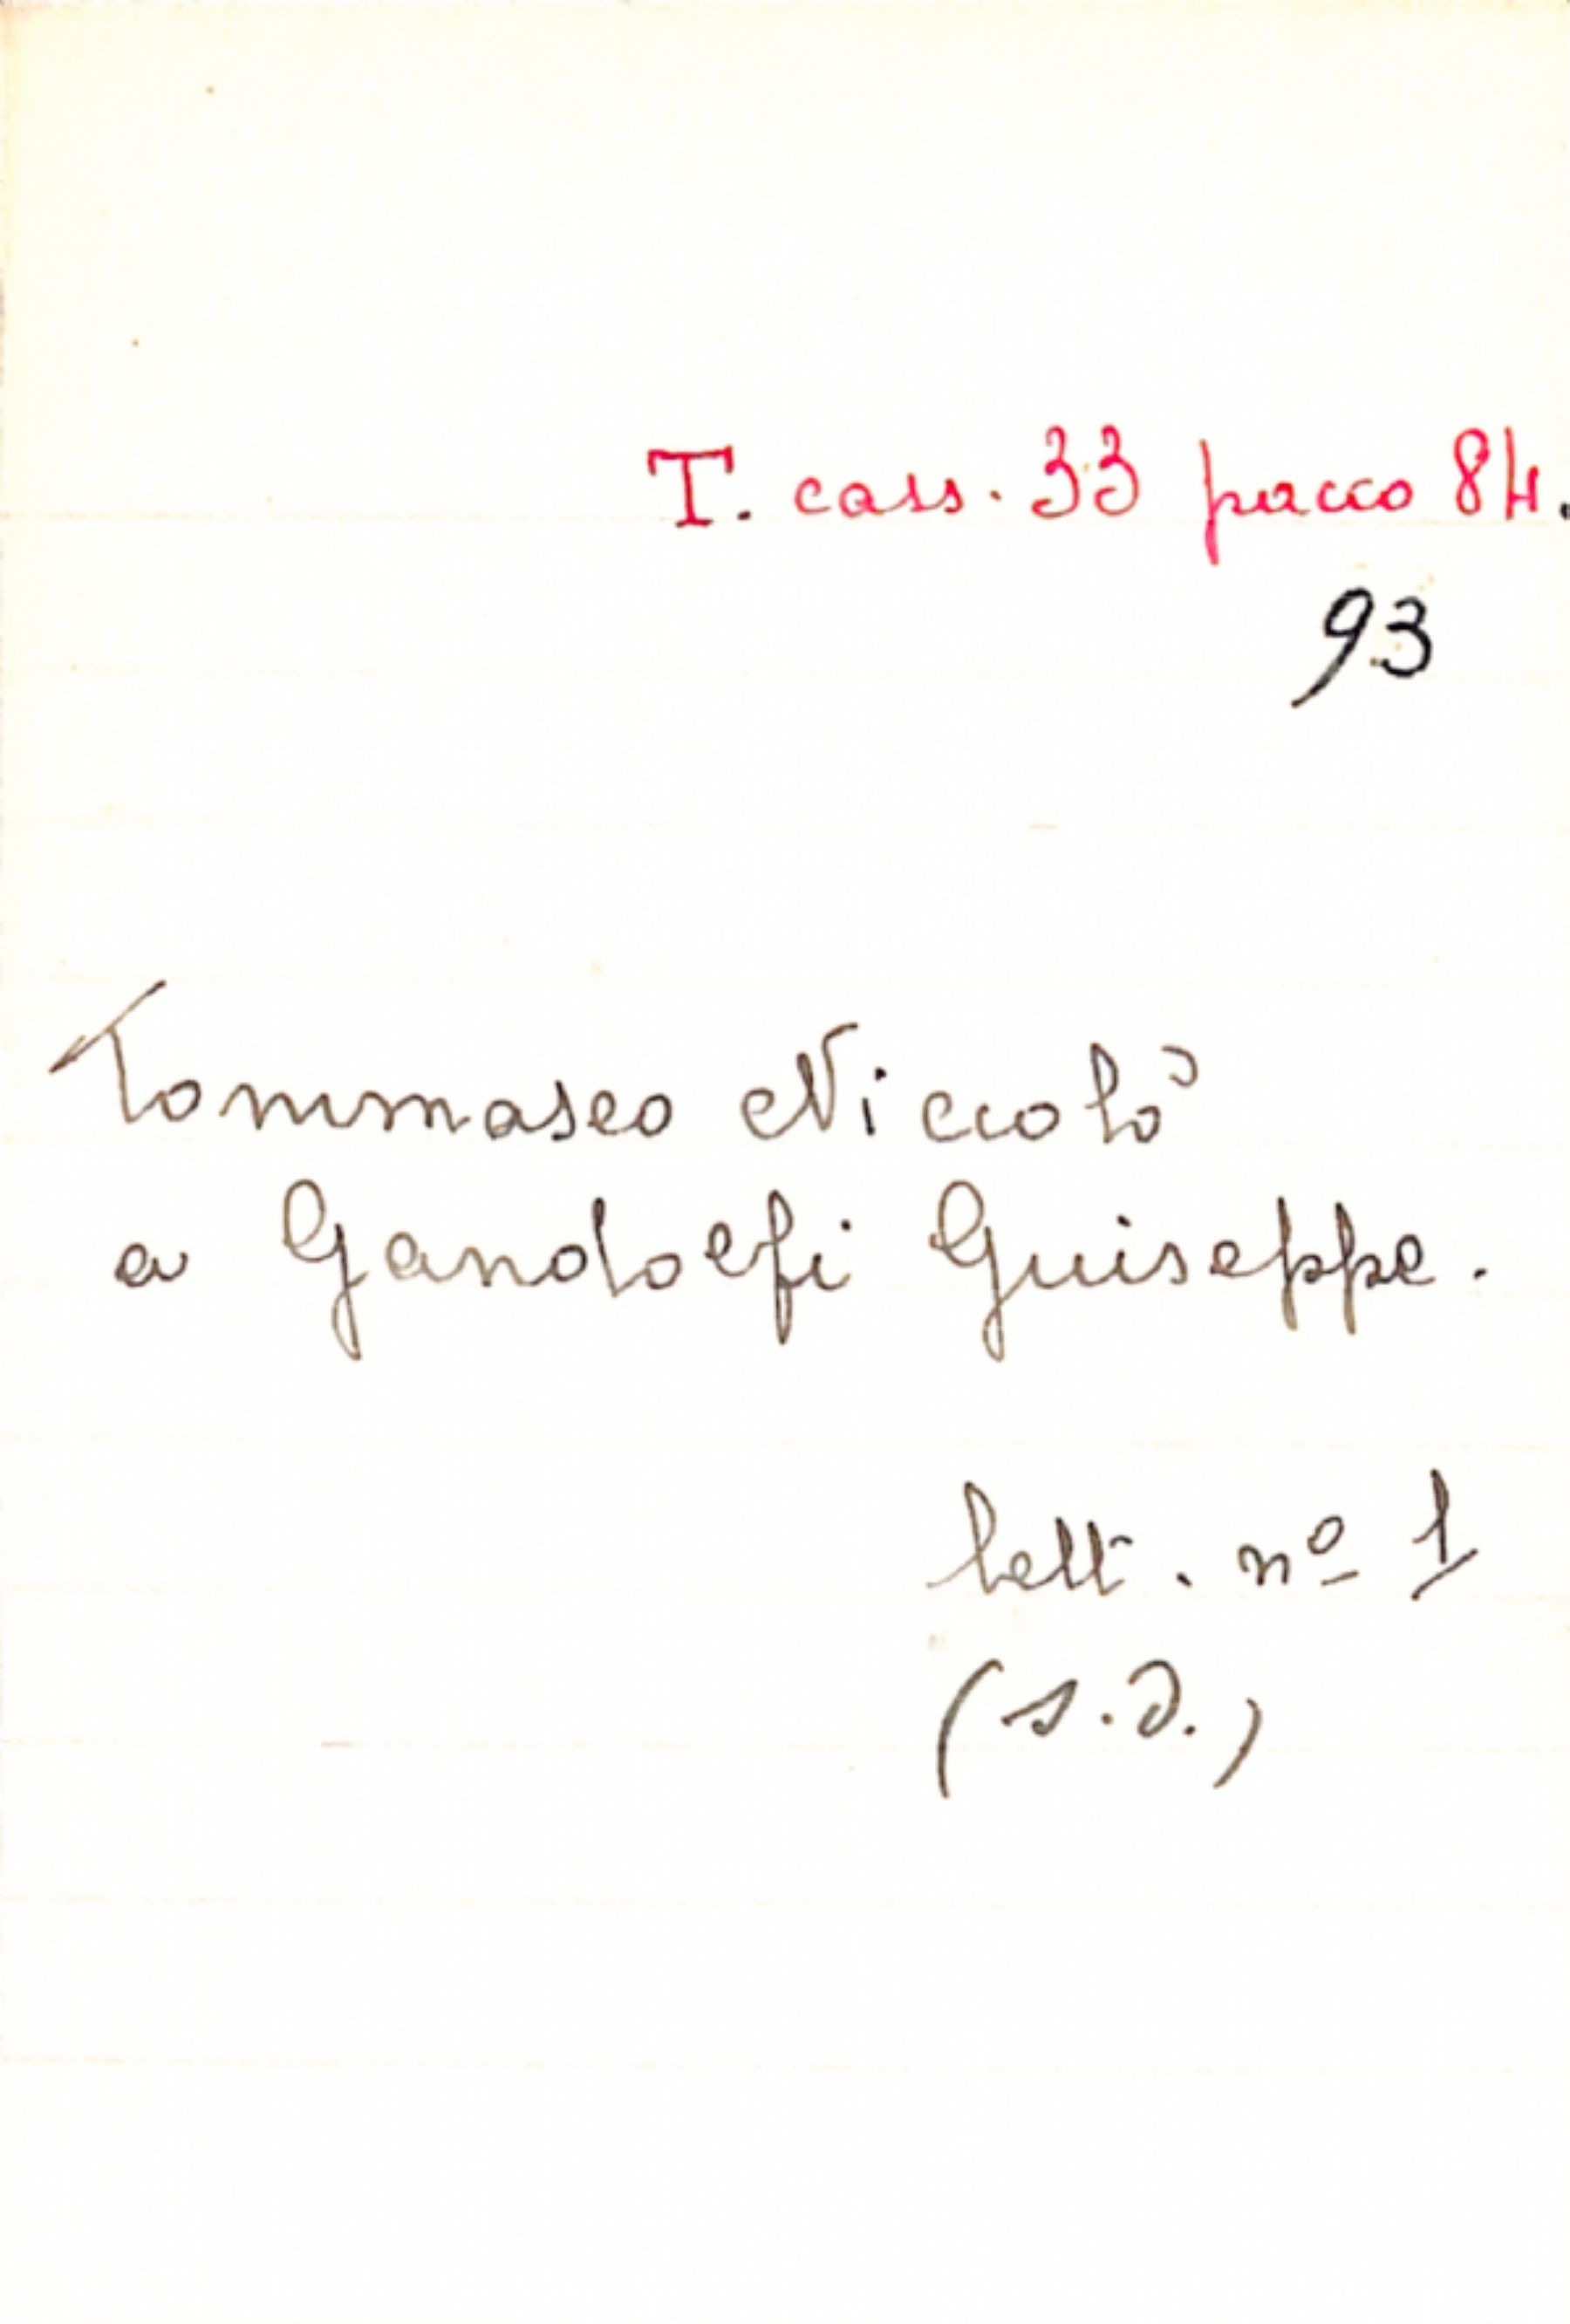 T. cass. 33 pacco 84.
93
Tommaseo Niccolò
a Gandolfi Guiseppe.
lett. nº 1
(s.d.)